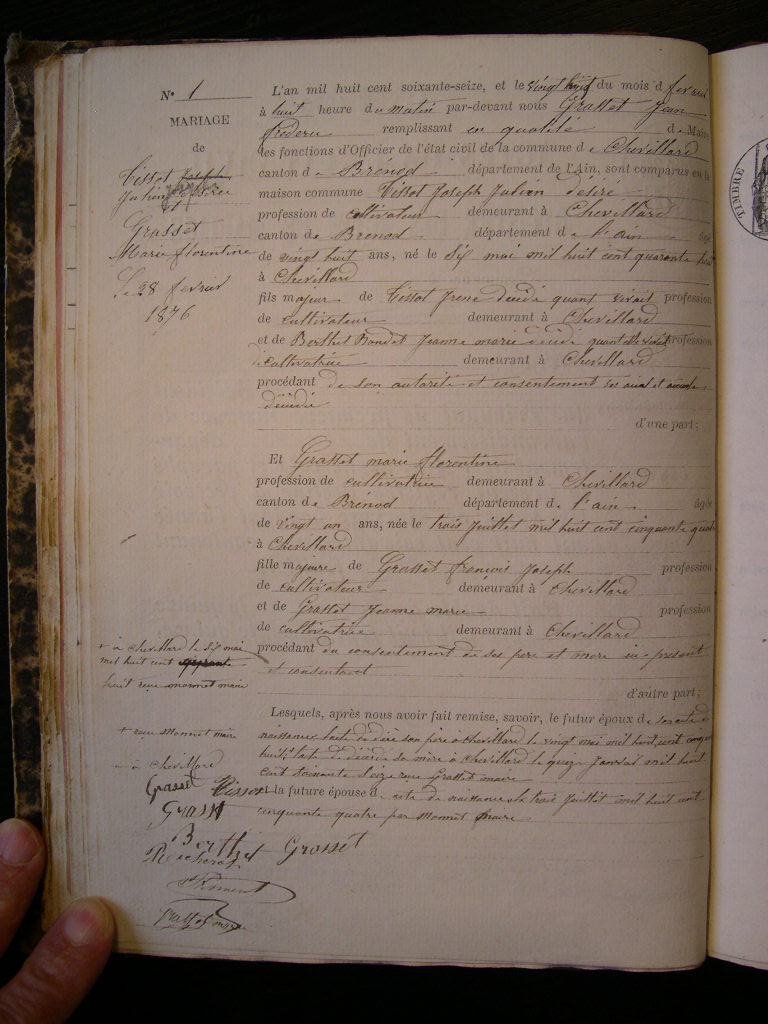 N° 1
MARIAGE
de
Tissot Joseph
Julien Désiré
et
Grasset
Marie florentine
Le 28 fevrier
1876
L'an mil huit cent soixante-seize, et le vingt huit du mois d fevrier
à huit heure du matin par-devant nous Grasset Jean
remplissant en qualité de Maire
les fonctions d'Officier de l'état civil de la commune de Chevillard
canton de Brénod département de l'Ain, sont comparus en la
maison commune Tissot Joseph Julien Desiré
profession de cultivateur demeurant à Chevillard
canton de Brenod département de l'ain âgé
de vingt huit ans, né le dix mai mil huit cent quarante huit
à Chevillard
fils majeur de Tissot decidé quant vivait profession
de cultivateur demeurant à Chevillard
et de Berthet Bondet Jeanne marie décidé quant elle vivait profession
de cultivatrice demeurant à Chevillard
procédant de son autorité et consentement ses aieul et aieule
décidé
d'une part ;
Et Grasset marie florentine
profession de cultivatrice demeurant à Chevillard
canton de Brénod département de l'ain âgée
de vingt un ans, née le trois Juillet mil huit cent cinquante quatre
à Chevillard
fille majeure de Grasset francois Joseph profession
de cultivateur demeurant à Chevillard
et de Grasset Jeanne marie profession
de cultivatrice demeurant à Chevillard
procédant du consentement de ses pere et mere ici present
et consentant
d'autre part ;
+ à chevillard le dix mai
mil huit cent quarante
huit reçu monnet maire
Lesquels, après nous avoir fait remise, savoir, le futur époux de son acte de
naissance, lacte de décè son père à chevillard le vingt mai mil huit cent cinquante
huit, lacte de décè de sa mère à chevillard le quinze Janvier mil huit
cent soixante seize reçu Grasset maire
et la future épouse de acte de naissance le trois Juillet mil huit cent
cinquante quatre par Monnet maire
+ reçu Monnet maire
à chevillard
Grasset Tissot
Grasst
Berthet Grosset